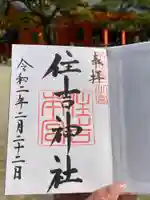 奉拝
住吉神社
令和二年二月二十二日